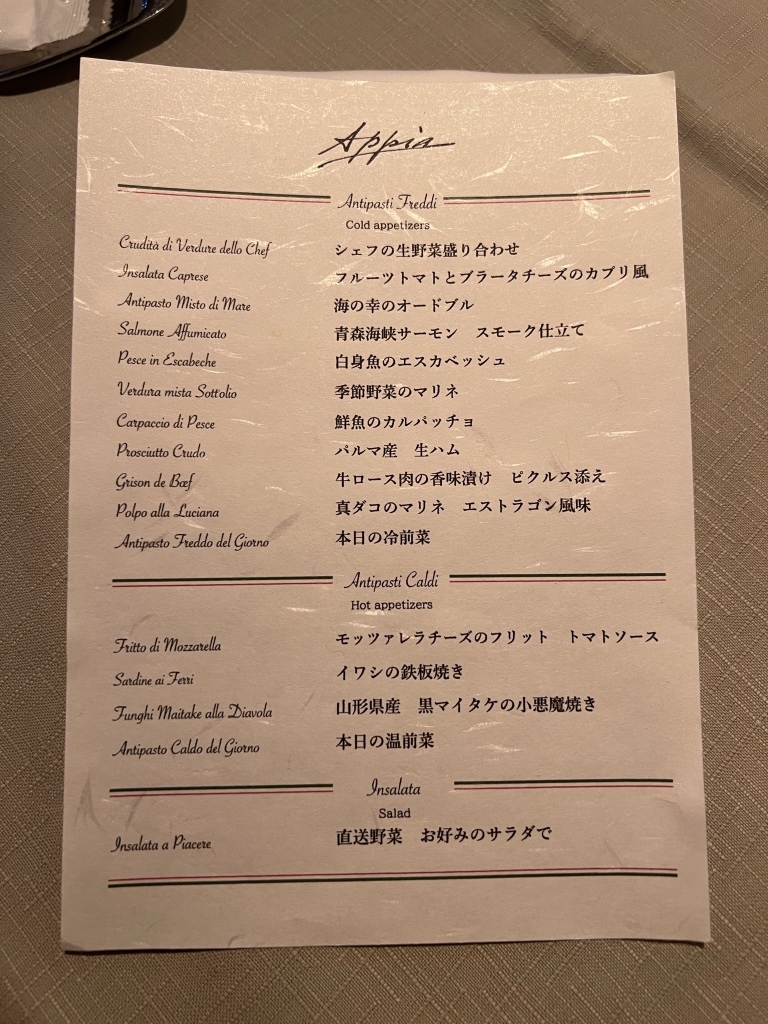 Appia
Antipasti Freddi
Cold appetizers
Crudità di Verdure dello Chef シェフの生野菜盛り合わせ
Insalata Caprese フルーツトマトとブラータチーズのカプリ風
Antipasto Misto di Mare 海の幸のオードブル
Salmone Affumicato 青森海峡サーモン スモーク仕立て
Pesce in Escabeche 白身魚のエスカベッシュ
Verdura mista Sott'olio 季節野菜のマリネ
Carpaccio di Pesce 鮮魚のカルパッチョ
Prosciutto Crudo パルマ産 生ハム
Grison de Bœf 牛ロース肉の香味漬け ピクルス添え
Polpo alla Luciana 真ダコのマリネ エストラゴン風味
Antipasto Freddo del Giorno 本日の冷前菜
Antipasti Caldi
Hot appetizers
Fritto di Mozzarella モッツァレラチーズのフリット トマトソース
Sardine ai Ferri イワシの鉄板焼き
Funghi Maitake alla Diavola 山形県産 黒マイタケの小悪魔焼き
Antipasto Caldo del Giorno 本日の温前菜
Insalata
Salad
Insalata a Piacere 直送野菜 お好みのサラダで